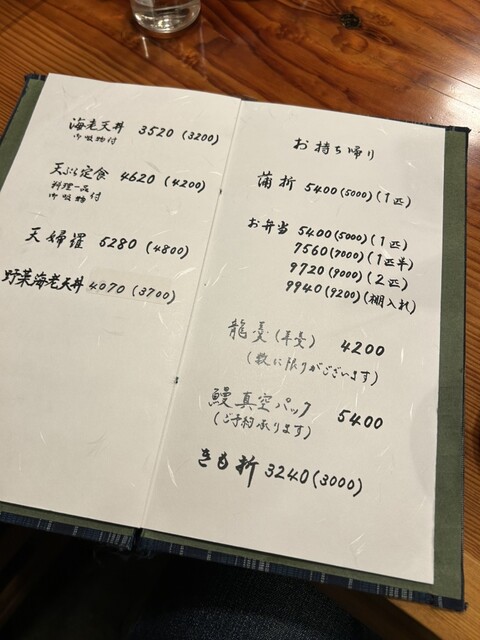 海老天丼 3520 (3200)
御吸物付
天ぷら定食 4620 (4200)
料理一品
御吸物 付
天婦羅 5280 (4800)
野菜海老天丼 4070 (3700)
お持ち帰り
蒲折 5400(5000)(1匹)
お弁当 5400(5000)(1匹)
7560(7000)(1匹半)
9720(9000)(2匹)
9940(9200)(棚入れ)
4200
(数に限りがございます)
鰻真空パック 5400
(ご予約承ります)
きも折 3240(3000)